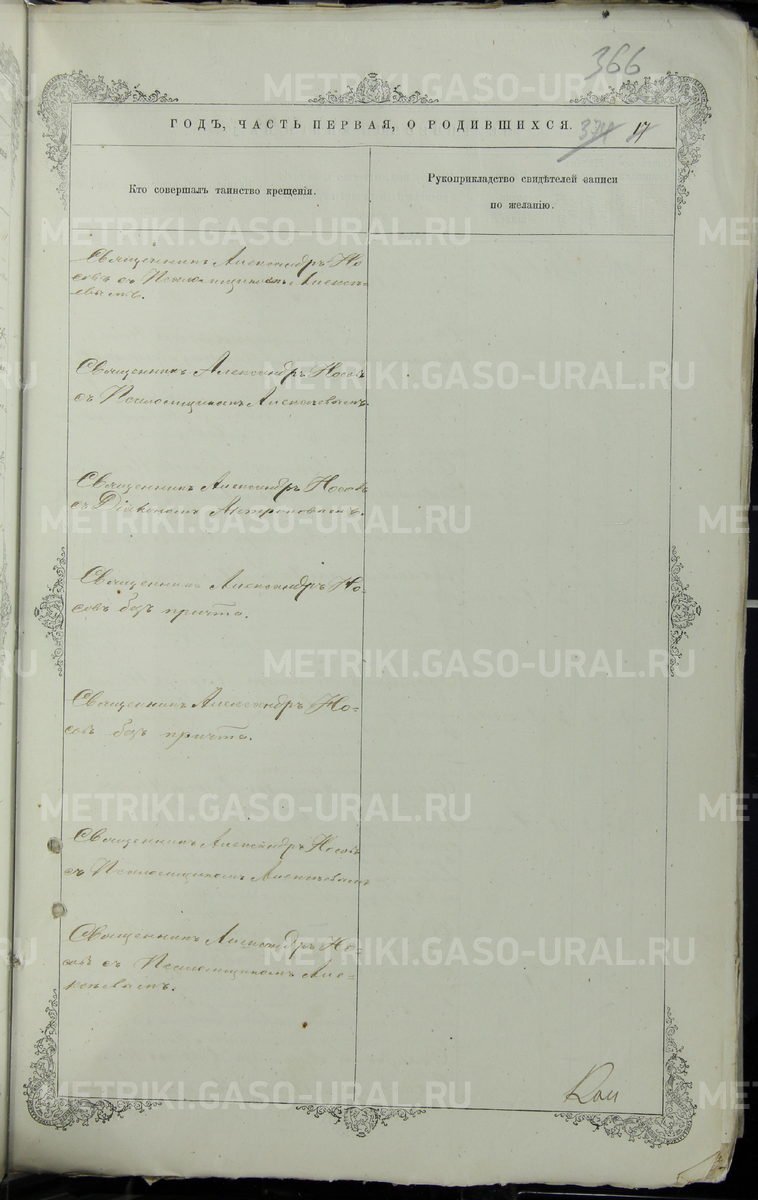 366
ГОДЪ, ЧАСТЬ ПЕРВАЯ, О РОДИВШИХСЯ.
17
Кто совершалъ таинство крещенія.
Рукоприкладство свидѣтелей записи
по желанію.
Священникъ Александръ Но
совъ съ Псаломщикомъ
Священникъ Александръ Носовъ
съ Псаломщикомъ
Священникъ Александръ Носовъ
съ Діакономъ
Священникъ Александръ Но-
совъ безъ причта.
Священникъ Александръ Но=
совъ безъ причта.
Священникъ Александръ Носовъ
съ Псаломщикомъ
Священникъ Александръ Но-
совъ съ Псаломщикомъ
METRIKI.GASO-URAL.RU